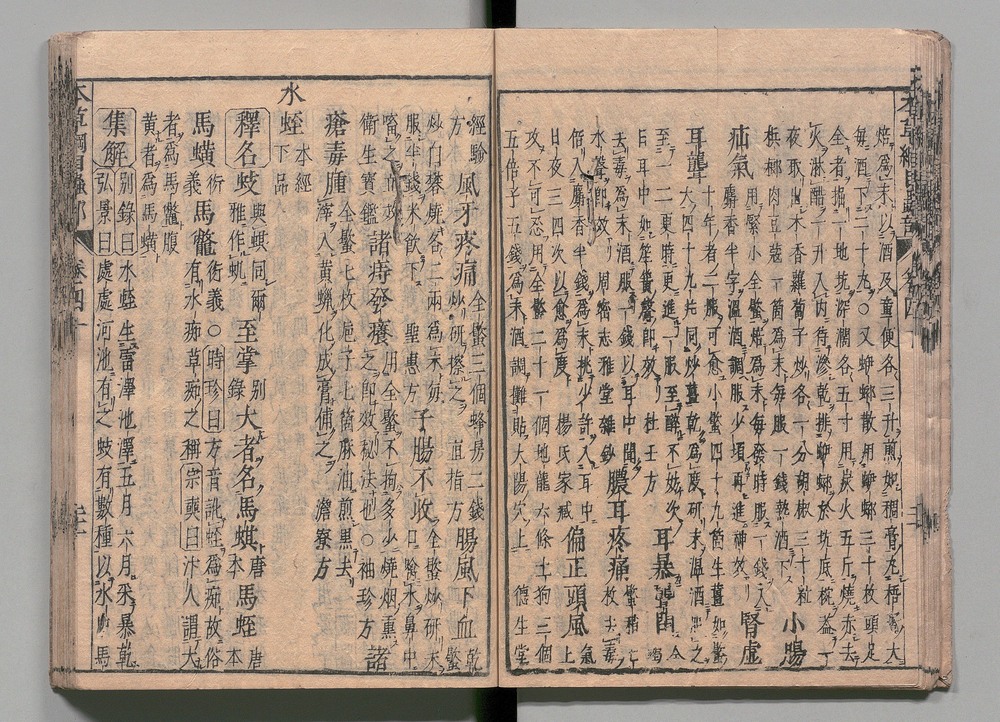 焙爲末以酒及童便各三升煎如稠膏丸梧子大
每酒下二十九○又蝍螂散用蝍螂三十枚頭足
全者掘一地坑深濶各五寸用炭火五斤燒赤去
火淋醋一升入內待滲乾排蝍螂於坑底椀蓋一
夜取出木香蘿蔔子炒各一分胡椒三十粒 小腸
檳榔肉豆蔻一箇爲末每服一錢熱酒下
疝氣 用緊小全蠍焙爲末每發時服一錢入
麝香半字溫酒調服少頃再進神效 腎虛
耳聾 十年者二服可愈小蠍四十九箇生薑如蠍
大四十九片同炒薑乾爲度研末溫酒服之
至一二更時更進一服至醉爲妙次
日耳中如笙簧聲即效 杜壬方 耳暴聾閉 全蠍
去毒爲末酒服一錢以耳中聞
水聲即效 周密志雅堂雜鈔 膿耳疼痛 蠍梢七枚去毒
焙入麝香半錢爲末挑少許入耳中
日夜三四次以愈爲度 楊氏家藏 偏正頭風 氣上
攻不可忍用全蠍二十一個地龍六條土狗三個
五倍子五錢爲末酒調攤貼太陽穴上 德生堂
經驗方 風牙疼痛 全蠍三個蜂房二錢炒研擦之 直指方 腸風下血 乾蠍
炒白礬燒各二兩爲末每
服半錢米飲下 聖惠方 子腸不收 全蠍炒研末口噙水鼻中
㗜之立效
衛生寶鑑 諸痔發癢 用全蠍不拘多少燒烟熏之即效秘法也○袖珍方 諸
瘡毒腫 全蠍七枚梔子七箇麻油煎黑去滓入黃蠟化成膏傅之 澹寮方
水蛭 本經下品
釋名 蚑 與蟣同爾雅作蟣 至掌 別錄 大者名馬蜞 唐本 馬蛭 唐本
馬蟥 衍義 馬鼈 衍義○時珍曰方音訛蛭爲痴故俗
有水痴草痴之稱宗奭曰汴人謂大
者爲馬鼈腹
黃者爲馬蟥
集解 別錄曰水蛭生雷澤池澤五月六月采暴乾
弘景曰處處河池有之蚑有數種以水中馬